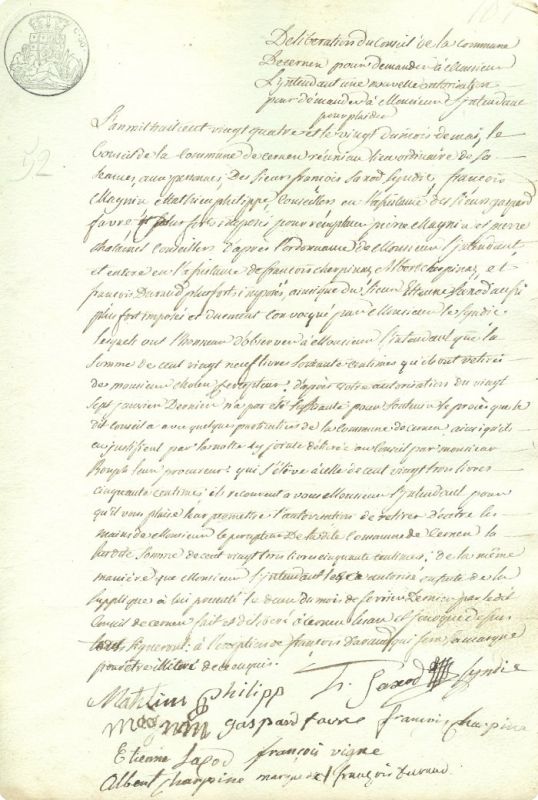 101
Déliberation du Conseil de la commune
De cernen pour demander à Monsieur
L'yntendant une nouvelle autorisation
pour démander à Monsieur l'yntendant
pour plaider
92
L'an mil huit cent vingt quatre et le vingt du mois de mai, le
Conseil de la Commune de cernen réuni au lieu ordinaire de ses
seances, aux personnes, Des sieurs françois Saxod syndic, françois
Magnin Mathieu philippe, Conseillers en l'assistance des sieurs gaspard
favre plus forts imposés pour remplacer pierre Magnin et pierre
chatains conseillers d'après l'ordonnance de Monsieur l'yntendant
et encore en l'assistance de francois charpine, Albert charpine, et
françois Duraud plus forts imposés, ainsi que du sieur Etienne Saxod aussi
plus fort imposé et duement convoqué par Monsieur le syndic
lesquels ont l'honneur d'observer à Monsieur l'yntendant que la
somme de cent vingt neuf livres soixante centimes qu'ils ont retirée
de monsieur percepteur, d'après votre autorisation du vingt
sept janvier Dernier n'a pas été suffisante pour soutenir le procès que le
dit conseil a avec quelques particuliers de la commune de cernen, ainsi qu'ils
en justifient par la notte cy jointe délivrée au Conseil par monsieur
leur procureur, qui s'élève à celle de cent vingt trois livres
cinquante centimes; ils recourent a vous Monsieur l'yntendant pour
qu'il vous plaise leur permettre l'autorisation de retirer d'entre les
mains de Monsieur le percepteur De la dite Commune de Cernen la
susdite somme de cent vingt trois livres cinquante centimes; de la même
manière que Monsieur l'yntendant les a autorisé ensuite de la
supplique à lui présenté le deux du mois de fevrier Dernier par le dit
Conseil de cernen fait et délibéré à cernen lieu et jour que dessus
signeront; à l'exception de francois Duraud qui fera sa marque
pour être illitéré de ce enquis.
Mathieu philipp fr. Saxod Syndic
magnin gaspard favre françois Charpine
Etienne Saxod françois vigne
Albert charpine marque de françois duraud